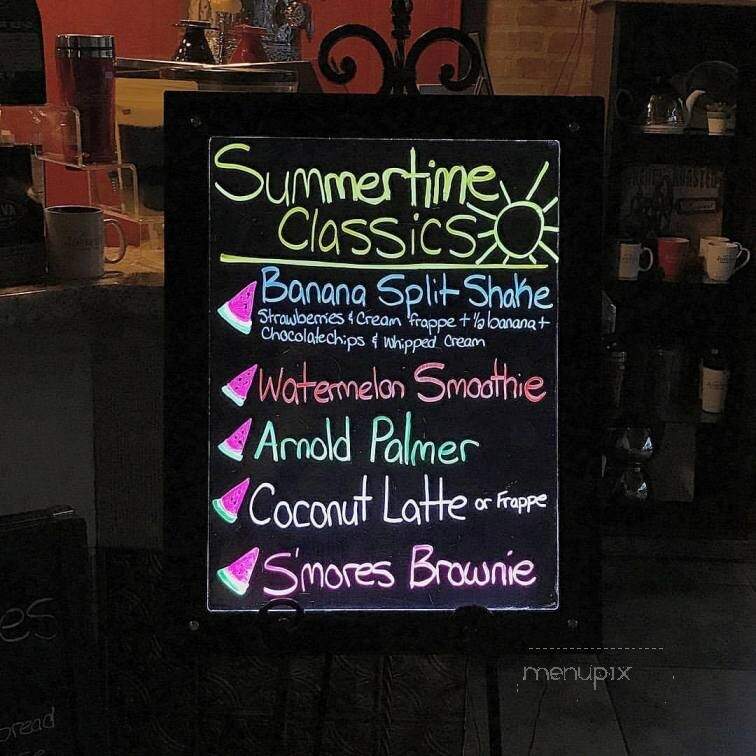 Summertime
Classics
Banana Split Shake
Strawberries & Cream frappe + ½ banana +
Chocolate chips & Whipped Cream
Watermelon Smoothie
Arnold Palmer
Coconut Latte or Frappe
S'mores Brownie
es
read
menupix